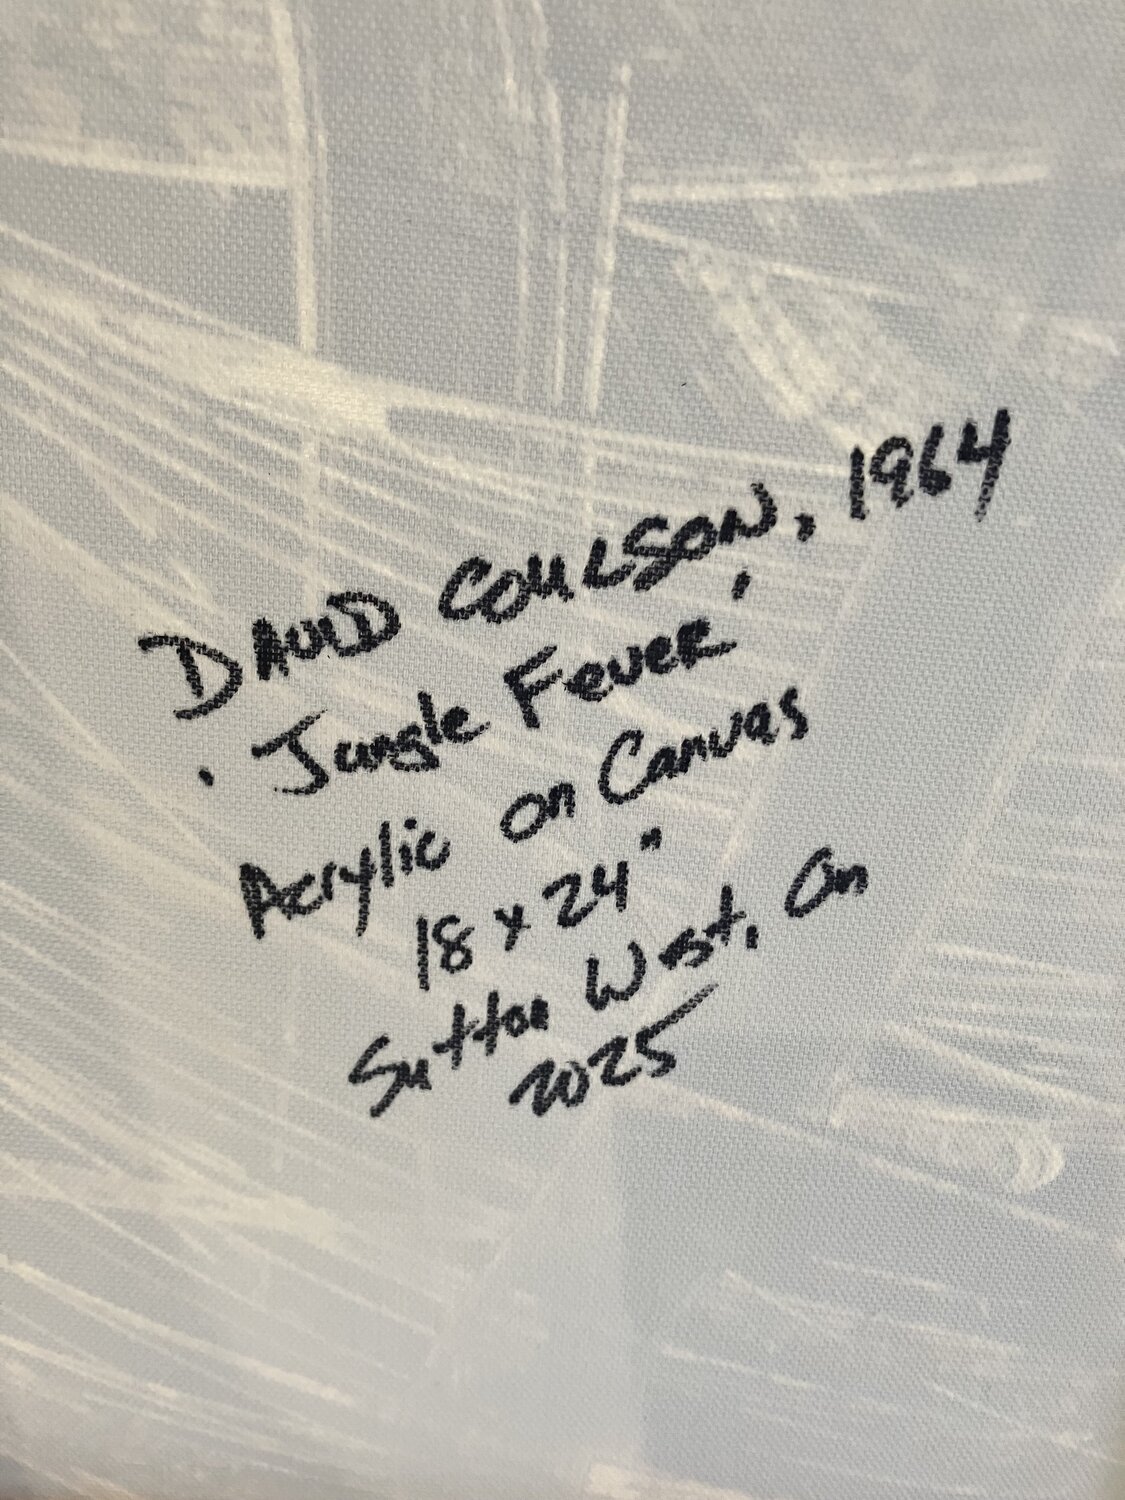 DAVID COULSON, 1964
'Jungle Fever'
Acrylic on Canvas
18 x 24"
Sutton West, On
2025